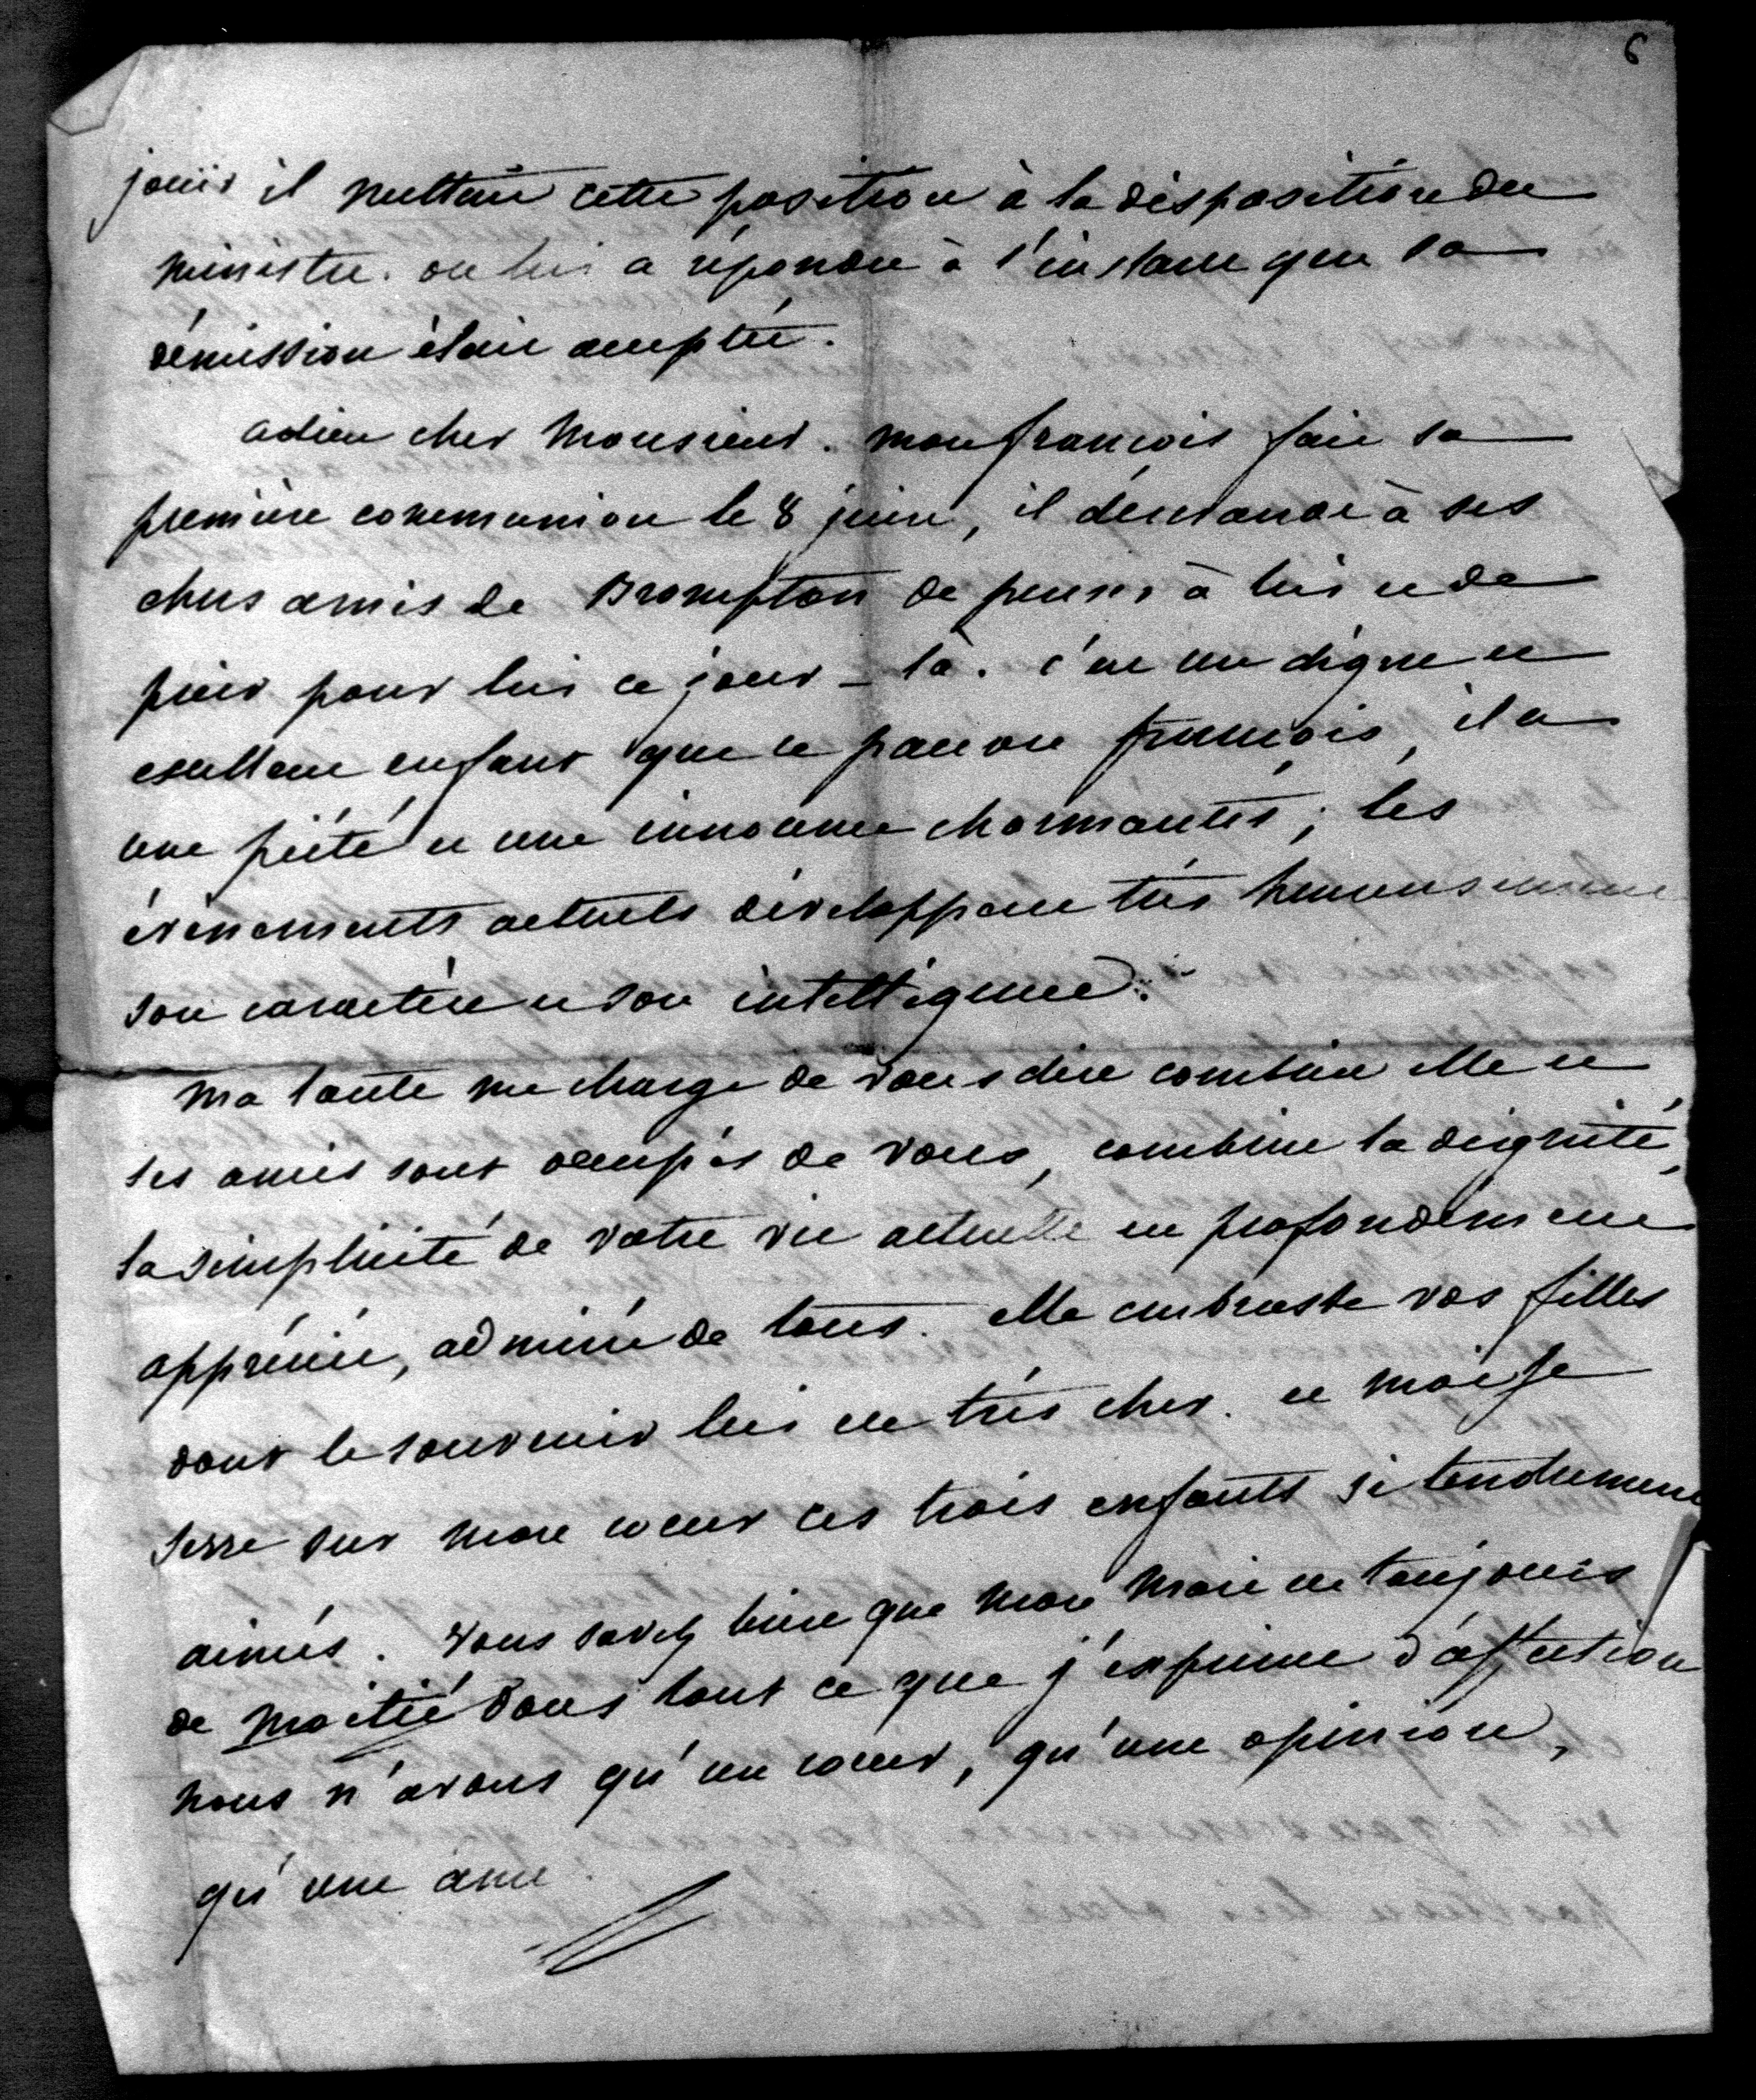 6
jouir il mettait cette position à la disposition du
ministre. on lui a répondu à l'instant que sa
démission était acceptée.
adieu cher Monsieur. mon françois fait sa
première communion le 8 juin, il demande à ses
chers amis de Brompton de penser à lui et de
prier pour lui ce jour-là. c'est un digne et
excellent enfant que ce pauvre françois, il a
une piété et une innocence charmantes; les
évènements actuels développent très heureusement
son caractère et son intelligence.
Ma tante me charge de vous dire combien elle et
ses amis sont occupés de vous, combien la dignité,
la simplicité de votre vie actuelle est profondément
appréciée, admirée de tous. elle embrasse vos filles
dont le souvenir lui est très cher. et moi je
serre sur mon coeur ces trois enfants si tendrement
aimés. Vous savez bien que mon mari est toujours
de moitié dans tout ce que j'exprime d'affection
nous n'avons qu'un coeur, qu'une opinion,
qu'une âme.